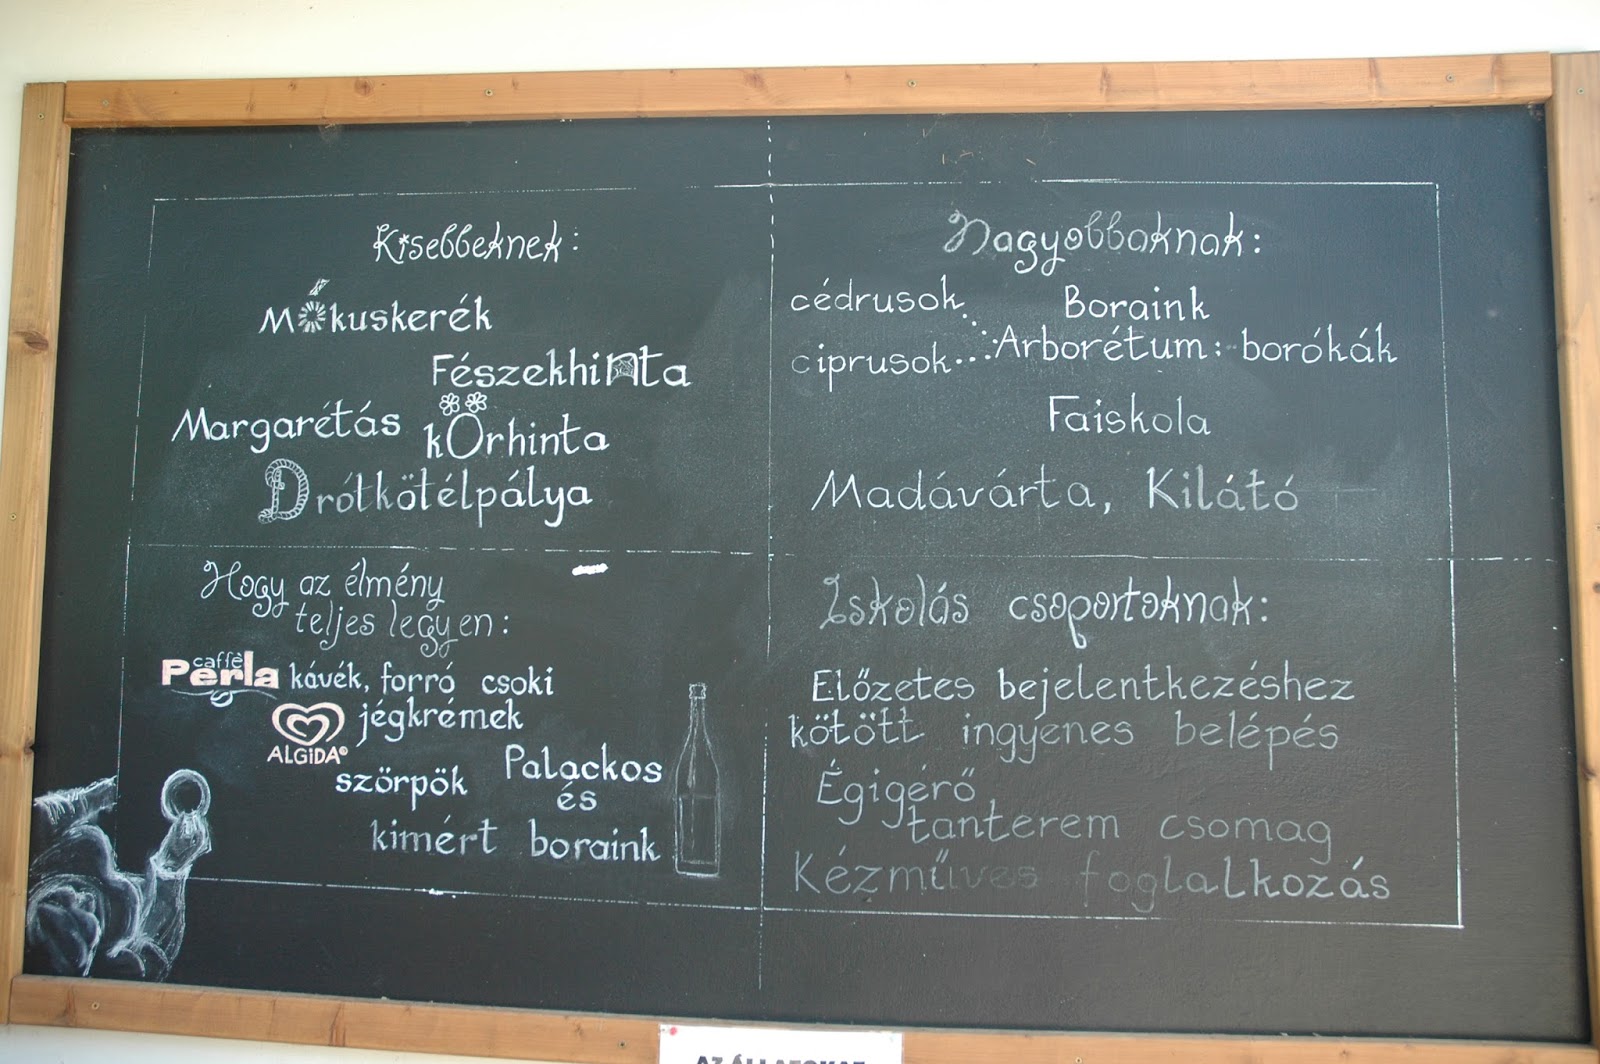 Kisebbeknek:
Mókuskerék
Fészekhinta
Margarétás kOrhinta
Drótkötélpálya
Nagyobbaknak:
Boraink
cédrusok
ciprusok...Arborétum: borókák
Faiskola
Madávárta, Kilátó
Hogy az élmény
teljes legyen:
caffè
Perla kávék, forró csoki
jégkrémek
ALGIDA®
szörpök
Palackos
és
kimért boraink
Iskolás csoportoknak:
Előzetes bejelentkezéshez
kötött ingyenes belépés
Égigérő
tanterem csomag
Kézműves foglalkozás
AZ ÁLLATOKAT